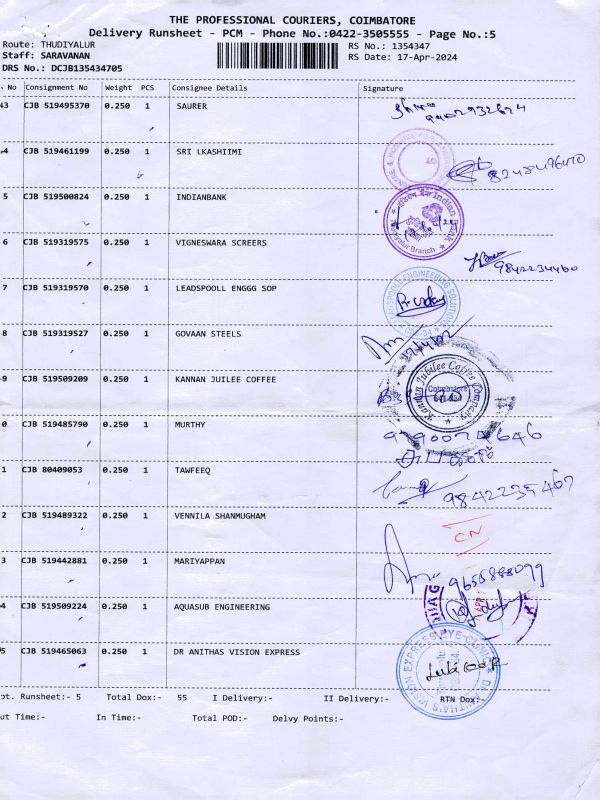 THE PROFESSIONAL COURIERS, COIMBATORE
Delivery Runsheet - PCM - Phone No.:0422-3505555 - Page No.:5
Route: THUDIYALUR
RS No.: 1354347
Staff: SARAVANAN
RS Date: 17-Apr-2024
DRS No.: DCJB135434705
No Consignment No Weight PCS Consignee Details Signature
43 CJB 519495370 0.250 1 SAURER
4 CJB 519461199 0.250 1 SRI LKASHIIMI
5 CJB 519500824 0.250 1 INDIANBANK
Indian Bank
Branch
6 CJB 519319575 0.250 1 VIGNESWARA SCREERS
9842234460
7 CJB 519319570 0.250 1 LEADSPOOLL ENGGG SOP
ENGINEERING SOLUTIONS
8 CJB 519319527 0.250 1 GOVAAN STEELS
9 CJB 519509209 0.250 1 KANNAN JUILEE COFFEE
Kannan Jubilee Coffee Company
Coimbatore
0 CJB 519485790 0.250 1 MURTHY
1 CJB 80409053 0.250 1 TAWFEEQ
9842235467
2 CJB 519489322 0.250 1 VENNILA SHANMUGHAM
CN
3 CJB 519442881 0.250 1 MARIYAPPAN
9655888099
4 CJB 519509224 0.250 1 AQUASUB ENGINEERING
5 CJB 519465063 0.250 1 DR ANITHAS VISION EXPRESS
VISION EXPRESS EYE CLINIC
pt. Runsheet:- 5 Total Dox:- 55 I Delivery:- II Delivery:- RTN Dox:-
ut Time:- In Time:- Total POD:- Delvy Points:-